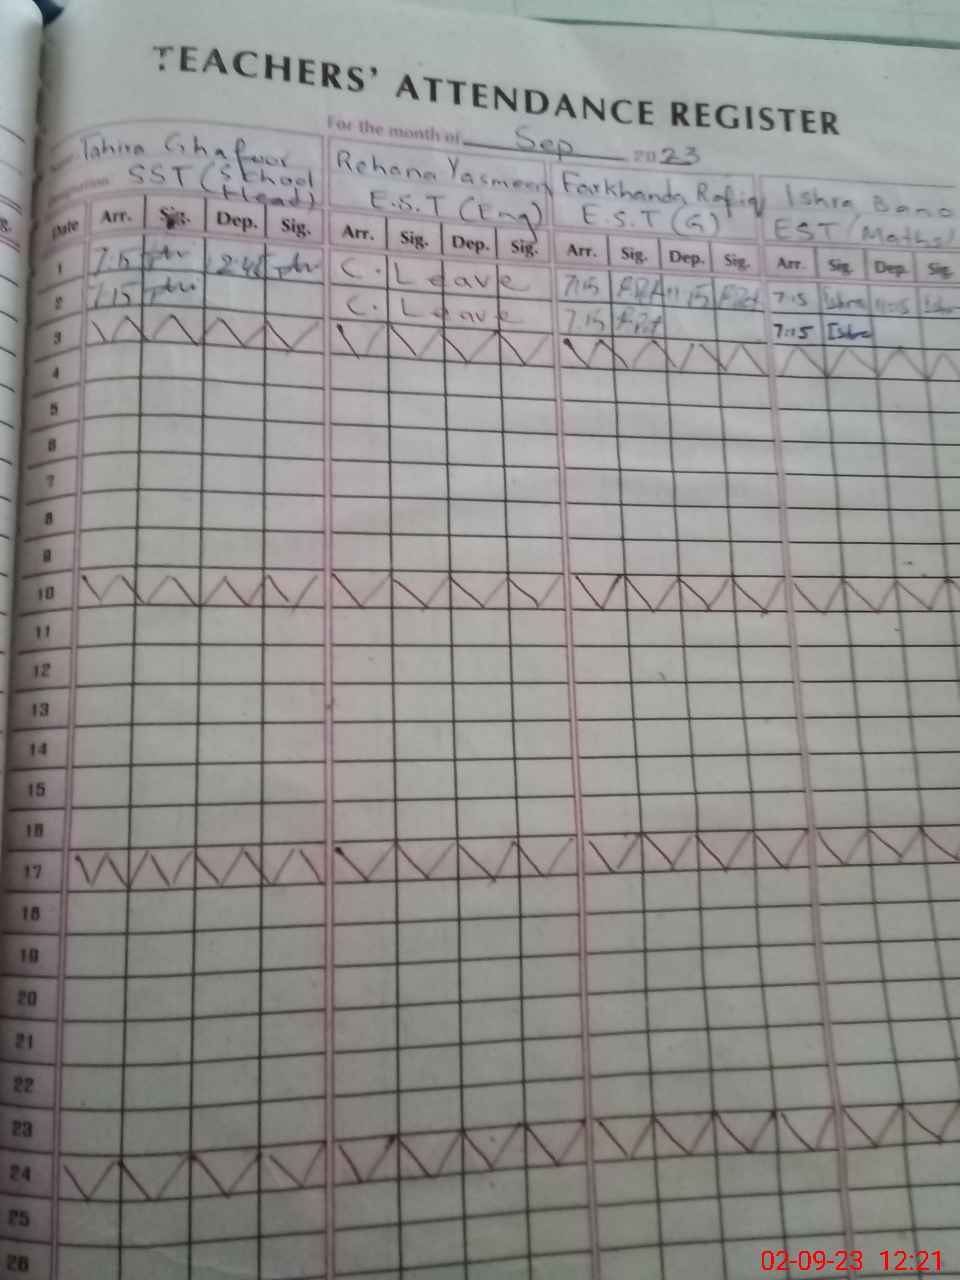 TEACHERS' ATTENDANCE REGISTER
For the month of Sep 2023
Tahira Ghafoor
SST (School Head)
Rehana Yasmeen
E.S.T (Eng)
Farkhanda Rafiq
E.S.T (G)
Ishra Bano
EST (Maths)
Date Arr. Sig. Dep. Sig. Arr. Sig. Dep. Sig. Arr. Sig. Dep. Sig. Arr. Sig. Dep. Sig.
1 7.15 C. Leave 7:15 11:15 7:15 Ishra 11:15
2 7.15 C. Leave 7.15 7:15 Ishra
3
4
5
6
7
8
9
10
11
12
13
14
15
16
17
18
19
20
21
22
23
24
25
26
02-09-23 12:21